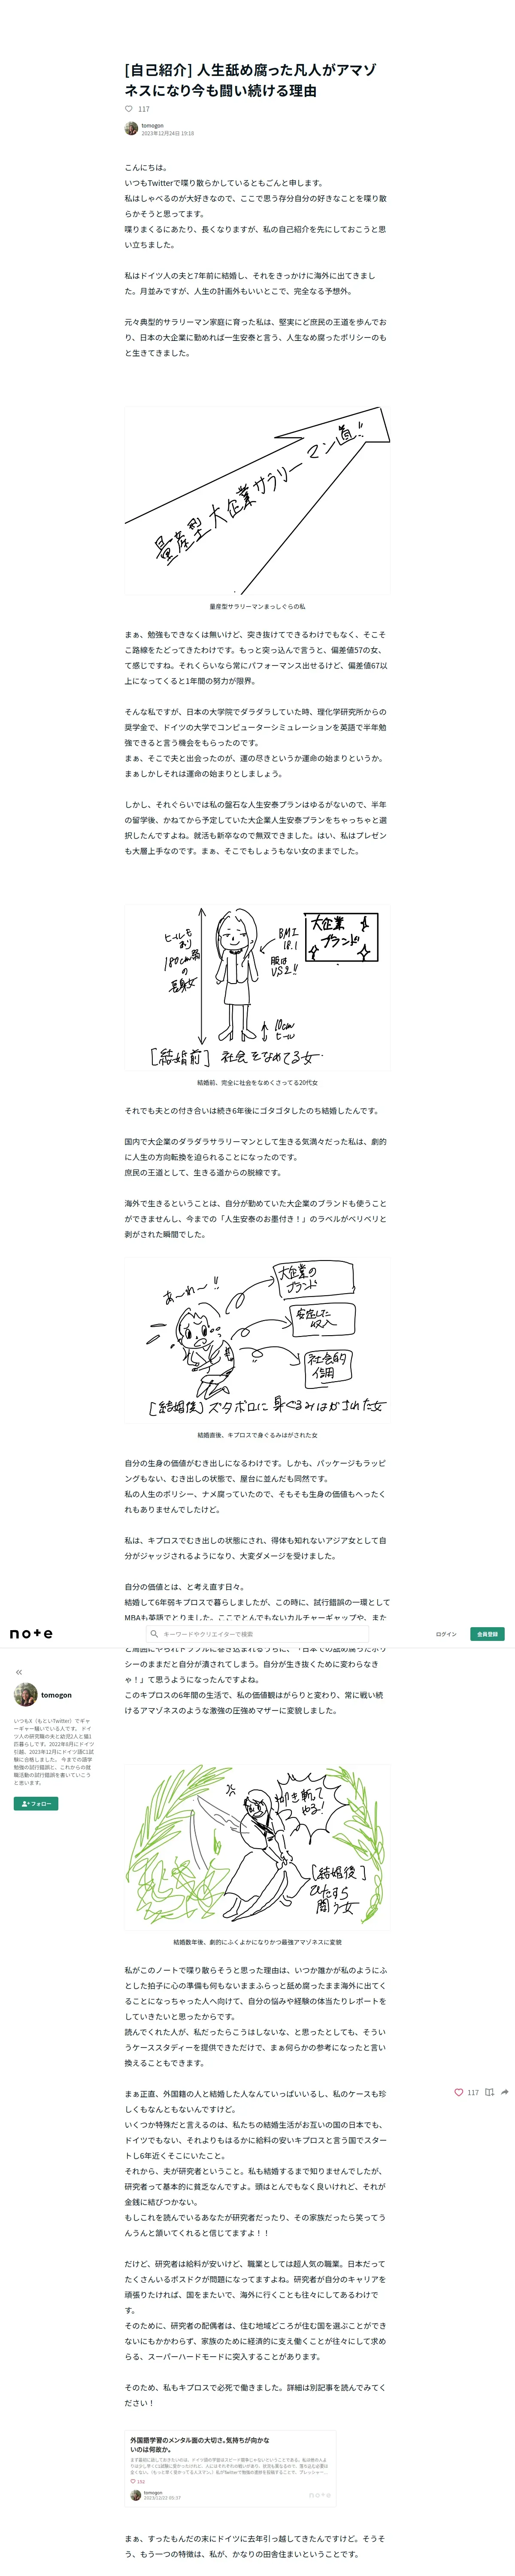 [自己紹介] 人生舐め腐った凡人がアマゾ
ネスになり今も闘い続ける理由
117
tomogon
2023年12月24日 19:10
こんにちは。
いつもTwitterで喋り散らかしているともごんと申します。
私はしゃべるのが大好きなので、ここで思う存分自分の好きなことを喋り散
らかそうと思ってます。
喋りまくるにあたり、長くなりますが、私の自己紹介を先にしておこうと思
い立ちました。
私はドイツ人の夫と7年前に結婚し、それをきっかけに海外に出てきまし
た。月並みですが、人生の計画外もいいとこで、完全なる予想外。
元々典型的サラリーマン家庭に育った私は、堅実にど庶民の王道を歩んでお
り、日本の大企業に勤めれば一生安泰と言う、人生なめ腐ったポリシーのも
と生きてきました。
量産型大企業サラリーマン道!!
量産型サラリーマンまっしぐらの私
まぁ、勉強もできなくは無いけど、突き抜けてできるわけでもなく、そこそ
こ路線をたどってきたわけです。もっと突っ込んで言うと、偏差値57の女、
て感じですね。それくらいなら常にパフォーマンス出せるけど、偏差値67以
上になってくると1年間の努力が限界。
そんな私ですが、日本の大学院でダラダラしていた時、理化学研究所からの
奨学金で、ドイツの大学でコンピューターシミュレーションを英語で半年勉
強できると言う機会をもらったのです。
まぁ、そこで夫と出会ったのが、運の尽きというか運命の始まりというか。
まぁしかしそれは運命の始まりとしましょう。
しかし、それぐらいでは私の盤石な人生安泰プランはゆるがないので、半年
の留学後、かねてから予定していた大企業人生安泰プランをちゃっちゃと選
択したんですよね。就活も新卒なので無双できました。はい、私はプレゼン
も大層上手なのです。まぁ、そこでもしょうもない女のままでした。
ヒールもあり
180cm弱
の
長身女
BMI
18.1
服は
US2!!
大企業
ブランド
10cm
ヒール
[結婚前] 社会をなめてる女.
結婚前、完全に社会をなめくさってる20代女
それでも夫との付き合いは続き6年後にゴタゴタしたのち結婚したんです。
国内で大企業のダラダラサラリーマンとして生きる気満々だった私は、劇的
に人生の方向転換を迫られることになったのです。
庶民の王道として、生きる道からの脱線です。
海外で生きるということは、自分が勤めていた大企業のブランドも使うこと
ができませんし、今までの「人生安泰のお墨付き！」のラベルがベリベリと
剥がされた瞬間でした。
あ〜れ〜!!
大企業の
ブランド
安定した
収入
社会的
信用
[結婚後] ズタボロに身ぐるみはがされた女
結婚直後、キプロスで身ぐるみはがされた女
自分の生身の価値がむき出しになるわけです。しかも、パッケージもラッピ
ングもない、むき出しの状態で、屋台に並んだも同然です。
私の人生のポリシー、ナメ腐っていたので、そもそも生身の価値もへったく
れもありませんでしたけど。
私は、キプロスでむき出しの状態にされ、得体も知れないアジア女として自
分がジャッジされるようになり、大変ダメージを受けました。
自分の価値とは、と考え直す日々。
結婚して6年弱キプロスで暮らしましたが、この時に、試行錯誤の一環として
MBAも英語でとりました。ここでとんでもないカルチャーギャップや、また
note
キーワードやクリエイターで検索
ログイン
会員登録
シーのままだと自分が潰されてしまう。自分が生き抜くために変わらなき
ゃ！」て思うようになったんですよね。
このキプロスの6年間の生活で、私の価値観はがらりと変わり、常に戦い続
けるアマゾネスのような激強の圧強めマザーに変貌しました。
tomogon
いつもX（もといTwitter）でギャ
ーギャー騒いでいる人です。 ドイ
ツ人の研究職の夫と幼児2人と猫1
匹暮らしです。2022年8月にドイツ
引越、2023年12月にドイツ語C1試
験に合格しました。 今までの語学
勉強の試行錯誤と、これからの就
職活動の試行錯誤を書いていこう
と思います。
フォロー
[結婚後]
ひたすら
闘う女
結婚数年後、劇的にふくよかになりかつ最強アマゾネスに変貌
私がこのノートで喋り散らそうと思った理由は、いつか誰かが私のようにふ
とした拍子に心の準備も何もないままふらっと舐め腐ったまま海外に出てく
ることになっちゃった人へ向けて、自分の悩みや経験の体当たりレポートを
していきたいと思ったからです。
読んでくれた人が、私だったらこうはしないな、と思ったとしても、そうい
うケーススタディーを提供できただけで、まぁ何らかの参考になったと言い
換えることもできます。
まぁ正直、外国籍の人と結婚した人なんていっぱいいるし、私のケースも珍
しくもなんともないんですけど。
いくつか特殊だと言えるのは、私たちの結婚生活がお互いの国の日本でも、
ドイツでもない、それよりもはるかに給料の安いキプロスと言う国でスター
トし6年近くそこにいたこと。
それから、夫が研究者ということ。私も結婚するまで知りませんでしたが、
研究者って基本的に貧乏なんですよ。頭はとんでもなく良いけれど、それが
金銭に結びつかない。
もしこれを読んでいるあなたが研究者だったり、その家族だったら笑ってう
んうんと頷いてくれると信じてますよ！！
117
だけど、研究者は給料が安いけど、職業としては超人気の職業。日本だって
たくさんいるポスドクが問題になってますよね。研究者が自分のキャリアを
頑張りたければ、国をまたいで、海外に行くことも往々にしてあるわけで
す。
そのために、研究者の配偶者は、住む地域どころが住む国を選ぶことができ
ないにもかかわらず、家族のために経済的に支え働くことが往々にして求め
らる、スーパーハードモードに突入することがあります。
そのため、私もキプロスで必死で働きました。詳細は別記事を読んでみてく
ださい！
外国語学習のメンタル面の大切さ。気持ちが向かな
いのは何故か。
102
tomogon
2023/12/22 05:37
note
まぁ、すったもんだの末にドイツに去年引っ越してきたんですけど。そうそ
う、もう一つの特徴は、私が、かなりの田舎住まいということです。